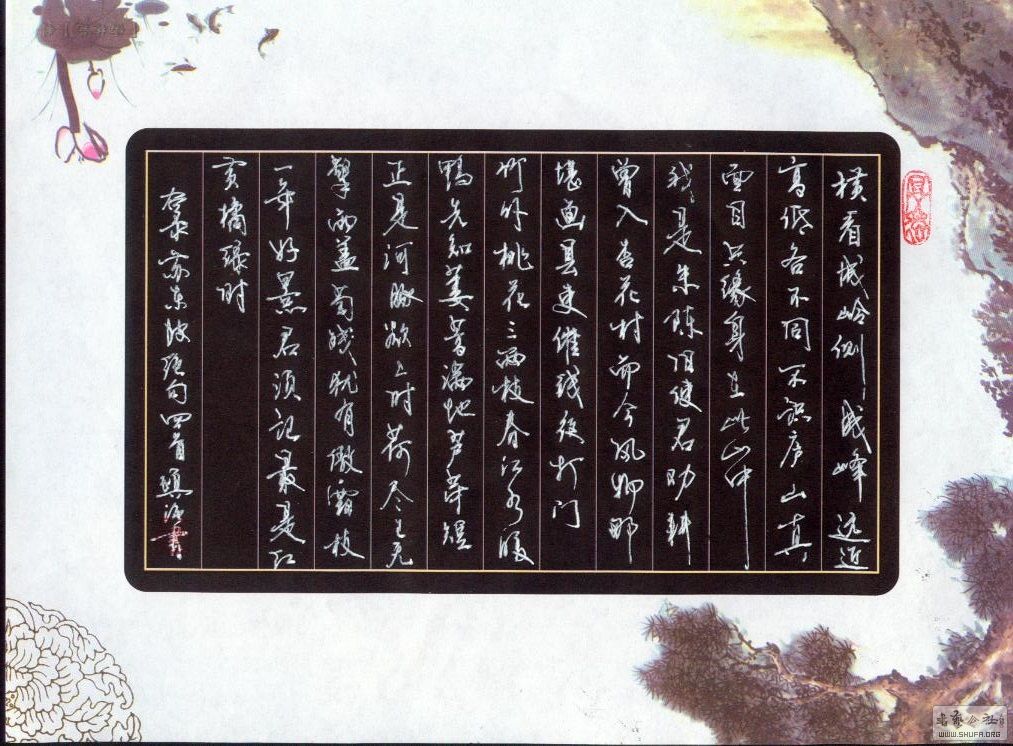 横看成岭侧成峰远近
高低各不同不识庐山真
面目只缘身在此山中
我是朱陈旧使君劝耕
曾入杏花村而今风物那
堪画县吏催钱夜打门
竹外桃花三两枝春江水暖
鸭先知蒌蒿满地芦芽短
正是河豚欲上时荷尽已无
擎雨盖菊残犹有傲霜枝
一年好景君须记最是红
黄橘绿时
右录苏东坡绝句四首 书
书艺公社
WWW.SHUFA.ORG